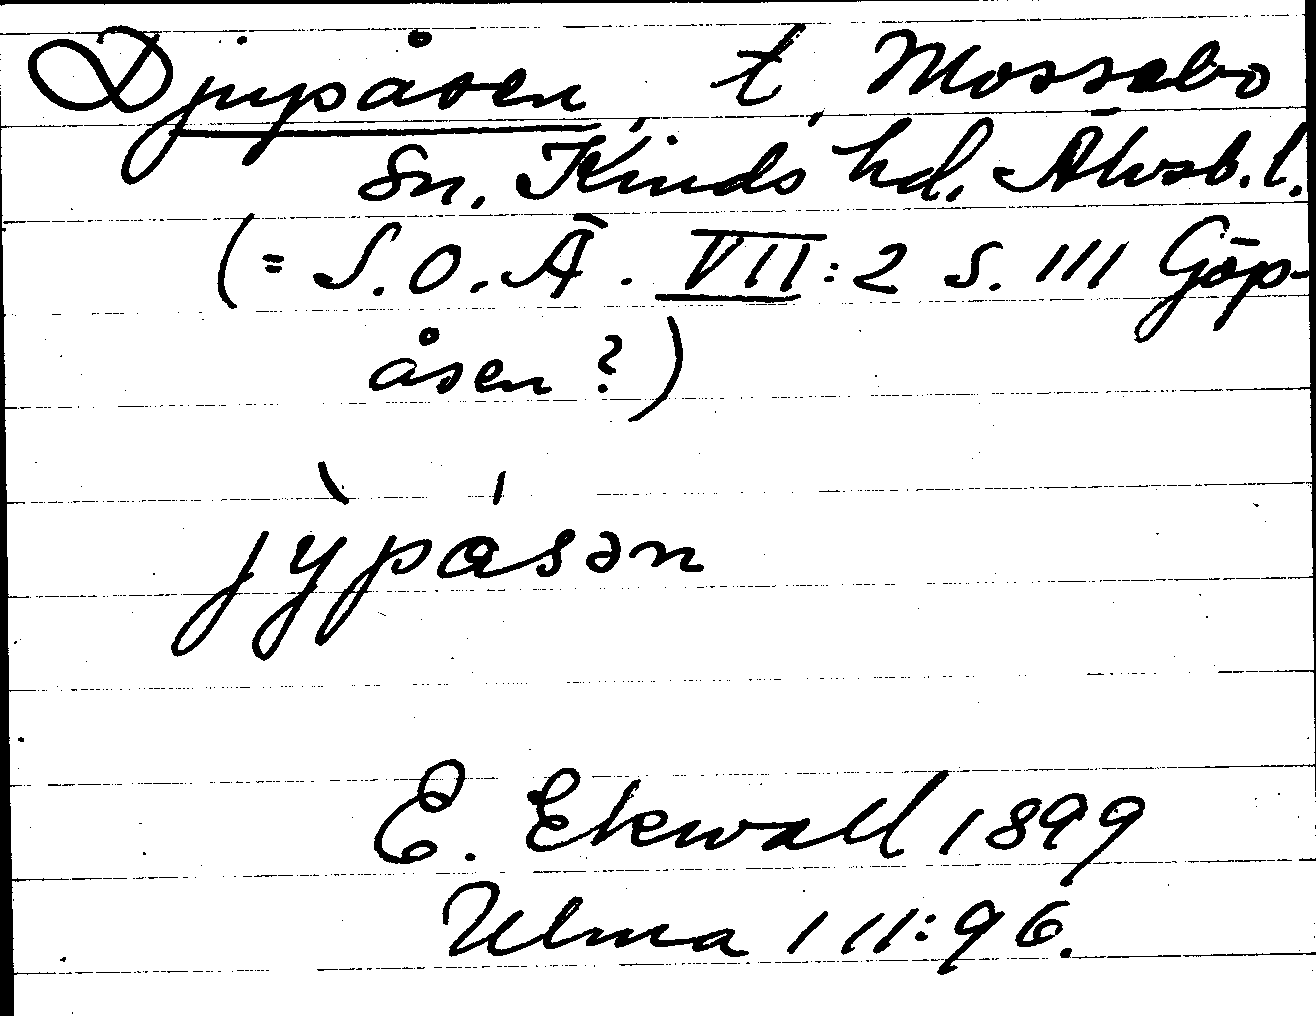 Djupåsen, t Mossebo
Sn, Kinds hd, Älvsb. l.
(= S. O. Ä. VII:2 S. 111 Göp-
åsen ?)
jỳpåsən
E. Ekwall 1899
Ulma 111:96.